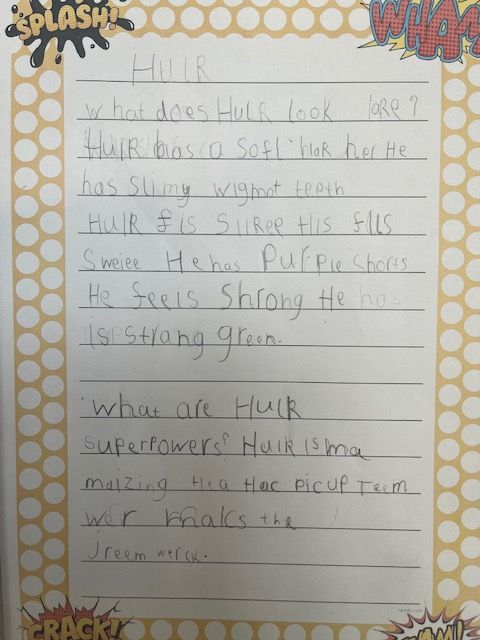 SPLASH!
WHAM
HulR
what does HulR look lare?
HulR has a Soft blaR her He
has Slimy wigmot teeth
HulR f is SiiRee His fils
Sweiee He has Purpie Shorts
He feeis Shrong He has
is Strang green.
What are HulR
superpowers? Hulk is ma
maizing He a Hac picup Teem
wer maks the
Jreem werck.
CRACK!